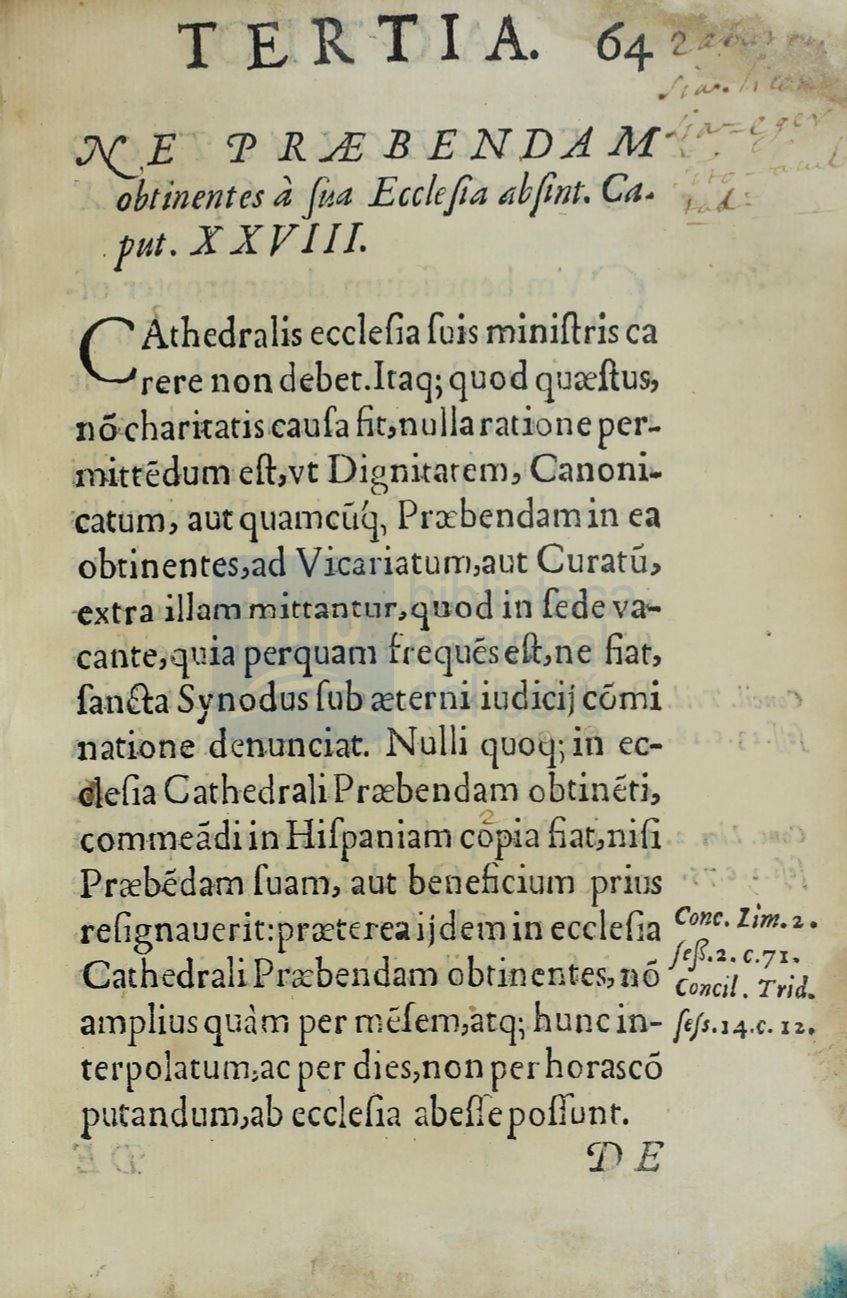 TERTIA. 64
NE PRÆBENDAM
obtinentes à ſua Eccleſia abſint. Ca-
put. XXVIII.
CAthedralis eccleſia ſuis miniſtris ca
rere non debet. Itaq; quod quæſtus,
nõ charitatis cauſa fit, nulla ratione per-
mittẽdum eſt, vt Dignitatem, Canoni-
catum, aut quamcũq́, Præbendam in ea
obtinentes, ad Vicariatum, aut Curatũ,
extra illam mittantur, quod in ſede va-
cante, quia perquam frequẽs eſt, ne fiat,
ſancta Synodus ſub æterni iudicij cõmi
natione denunciat. Nulli quoq; in ec-
cleſia Cathedrali Præbendam obtinẽti,
commeãdi in Hiſpaniam copia fiat, niſi
Præbẽdam ſuam, aut beneficium prius
reſignauerit: præterea ijdem in eccleſia
Cathedrali Præbendam obtinentes, nõ
amplius quàm per mẽſem, atq; hunc in-
terpolatum, ac per dies, non per horas cõ
putandum, ab eccleſia abeſſe poſſunt.
Conc. Lim. 2.
ſeß. 2. c. 71.
Concil. Trid.
ſeſs. 14. c. 12.
DE